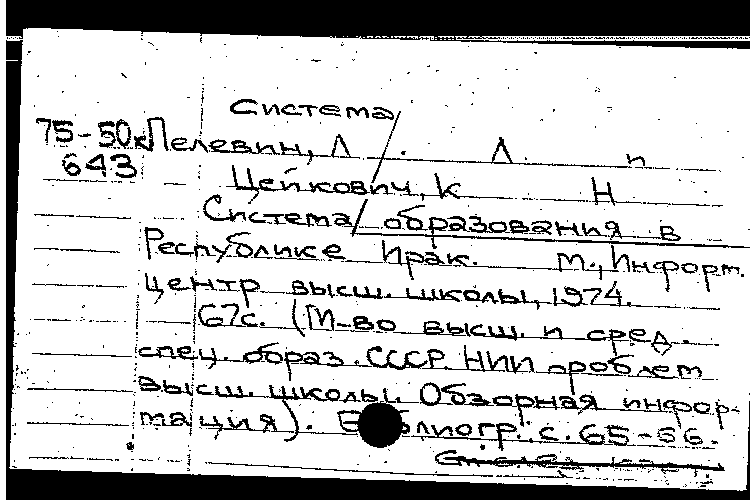 Система
75-50к Пелевин, Л. Л п
643
Цейкович, К Н
Система / образования в
Республике Ирак. М., Информ.
центр высш. школы, 1974.
67с. (М-во высш. и сред.
спец. образ. СССР. НИИ проблем
высш. школы. Обзорная инфор-
мация). Библиогр.: с. 65-66.